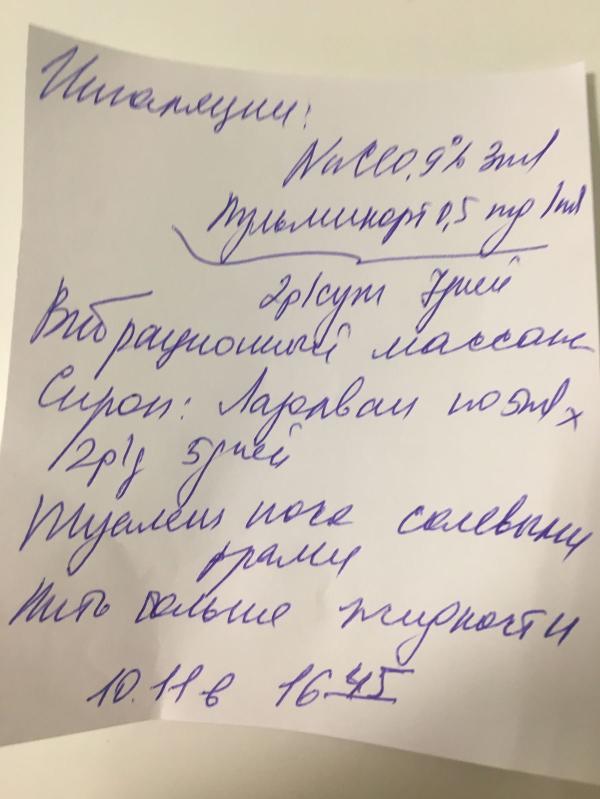 Ингаляции:
NaCl 0,9% 3ml
Пульмикорт 0,5 mg 1ml
2р/сут 7дней
Вибрационный массаж
Сироп: Лазолван по 5ml x
2р/д 5дней
Туалет носа солевыми
р-рами
Пить больше жидкости
10.11 в 16 45